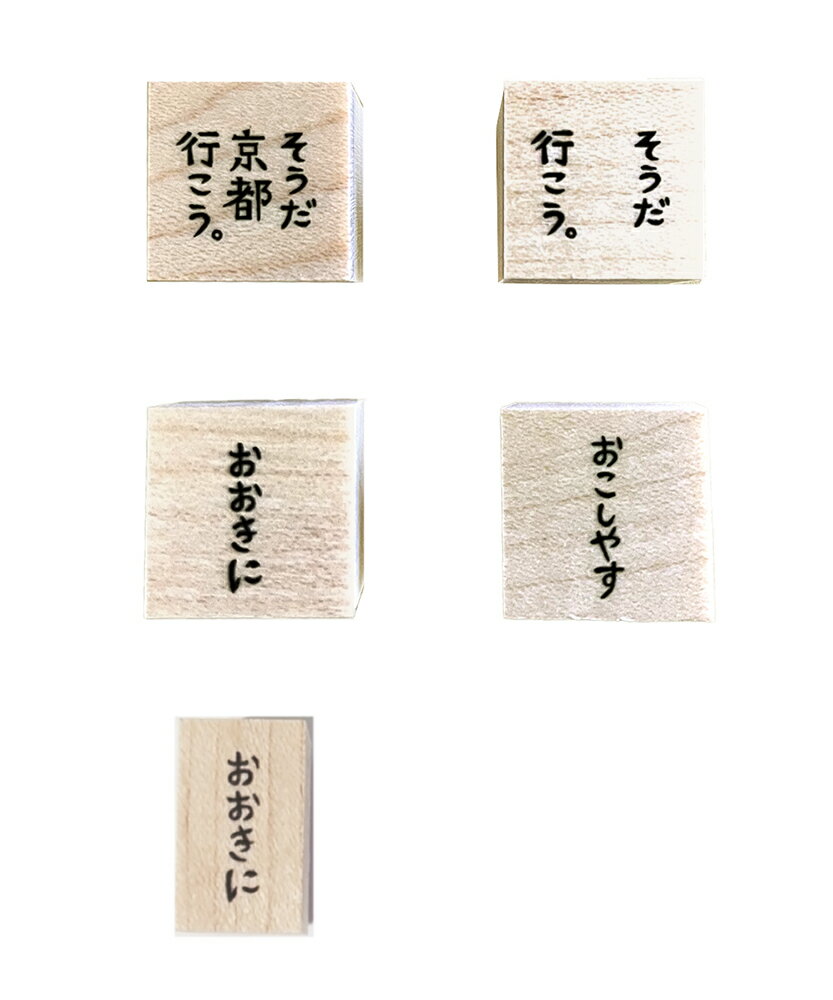 そうだ
京都
行こう。
そうだ
行こう。
おおきに
おこしやす
おおきに